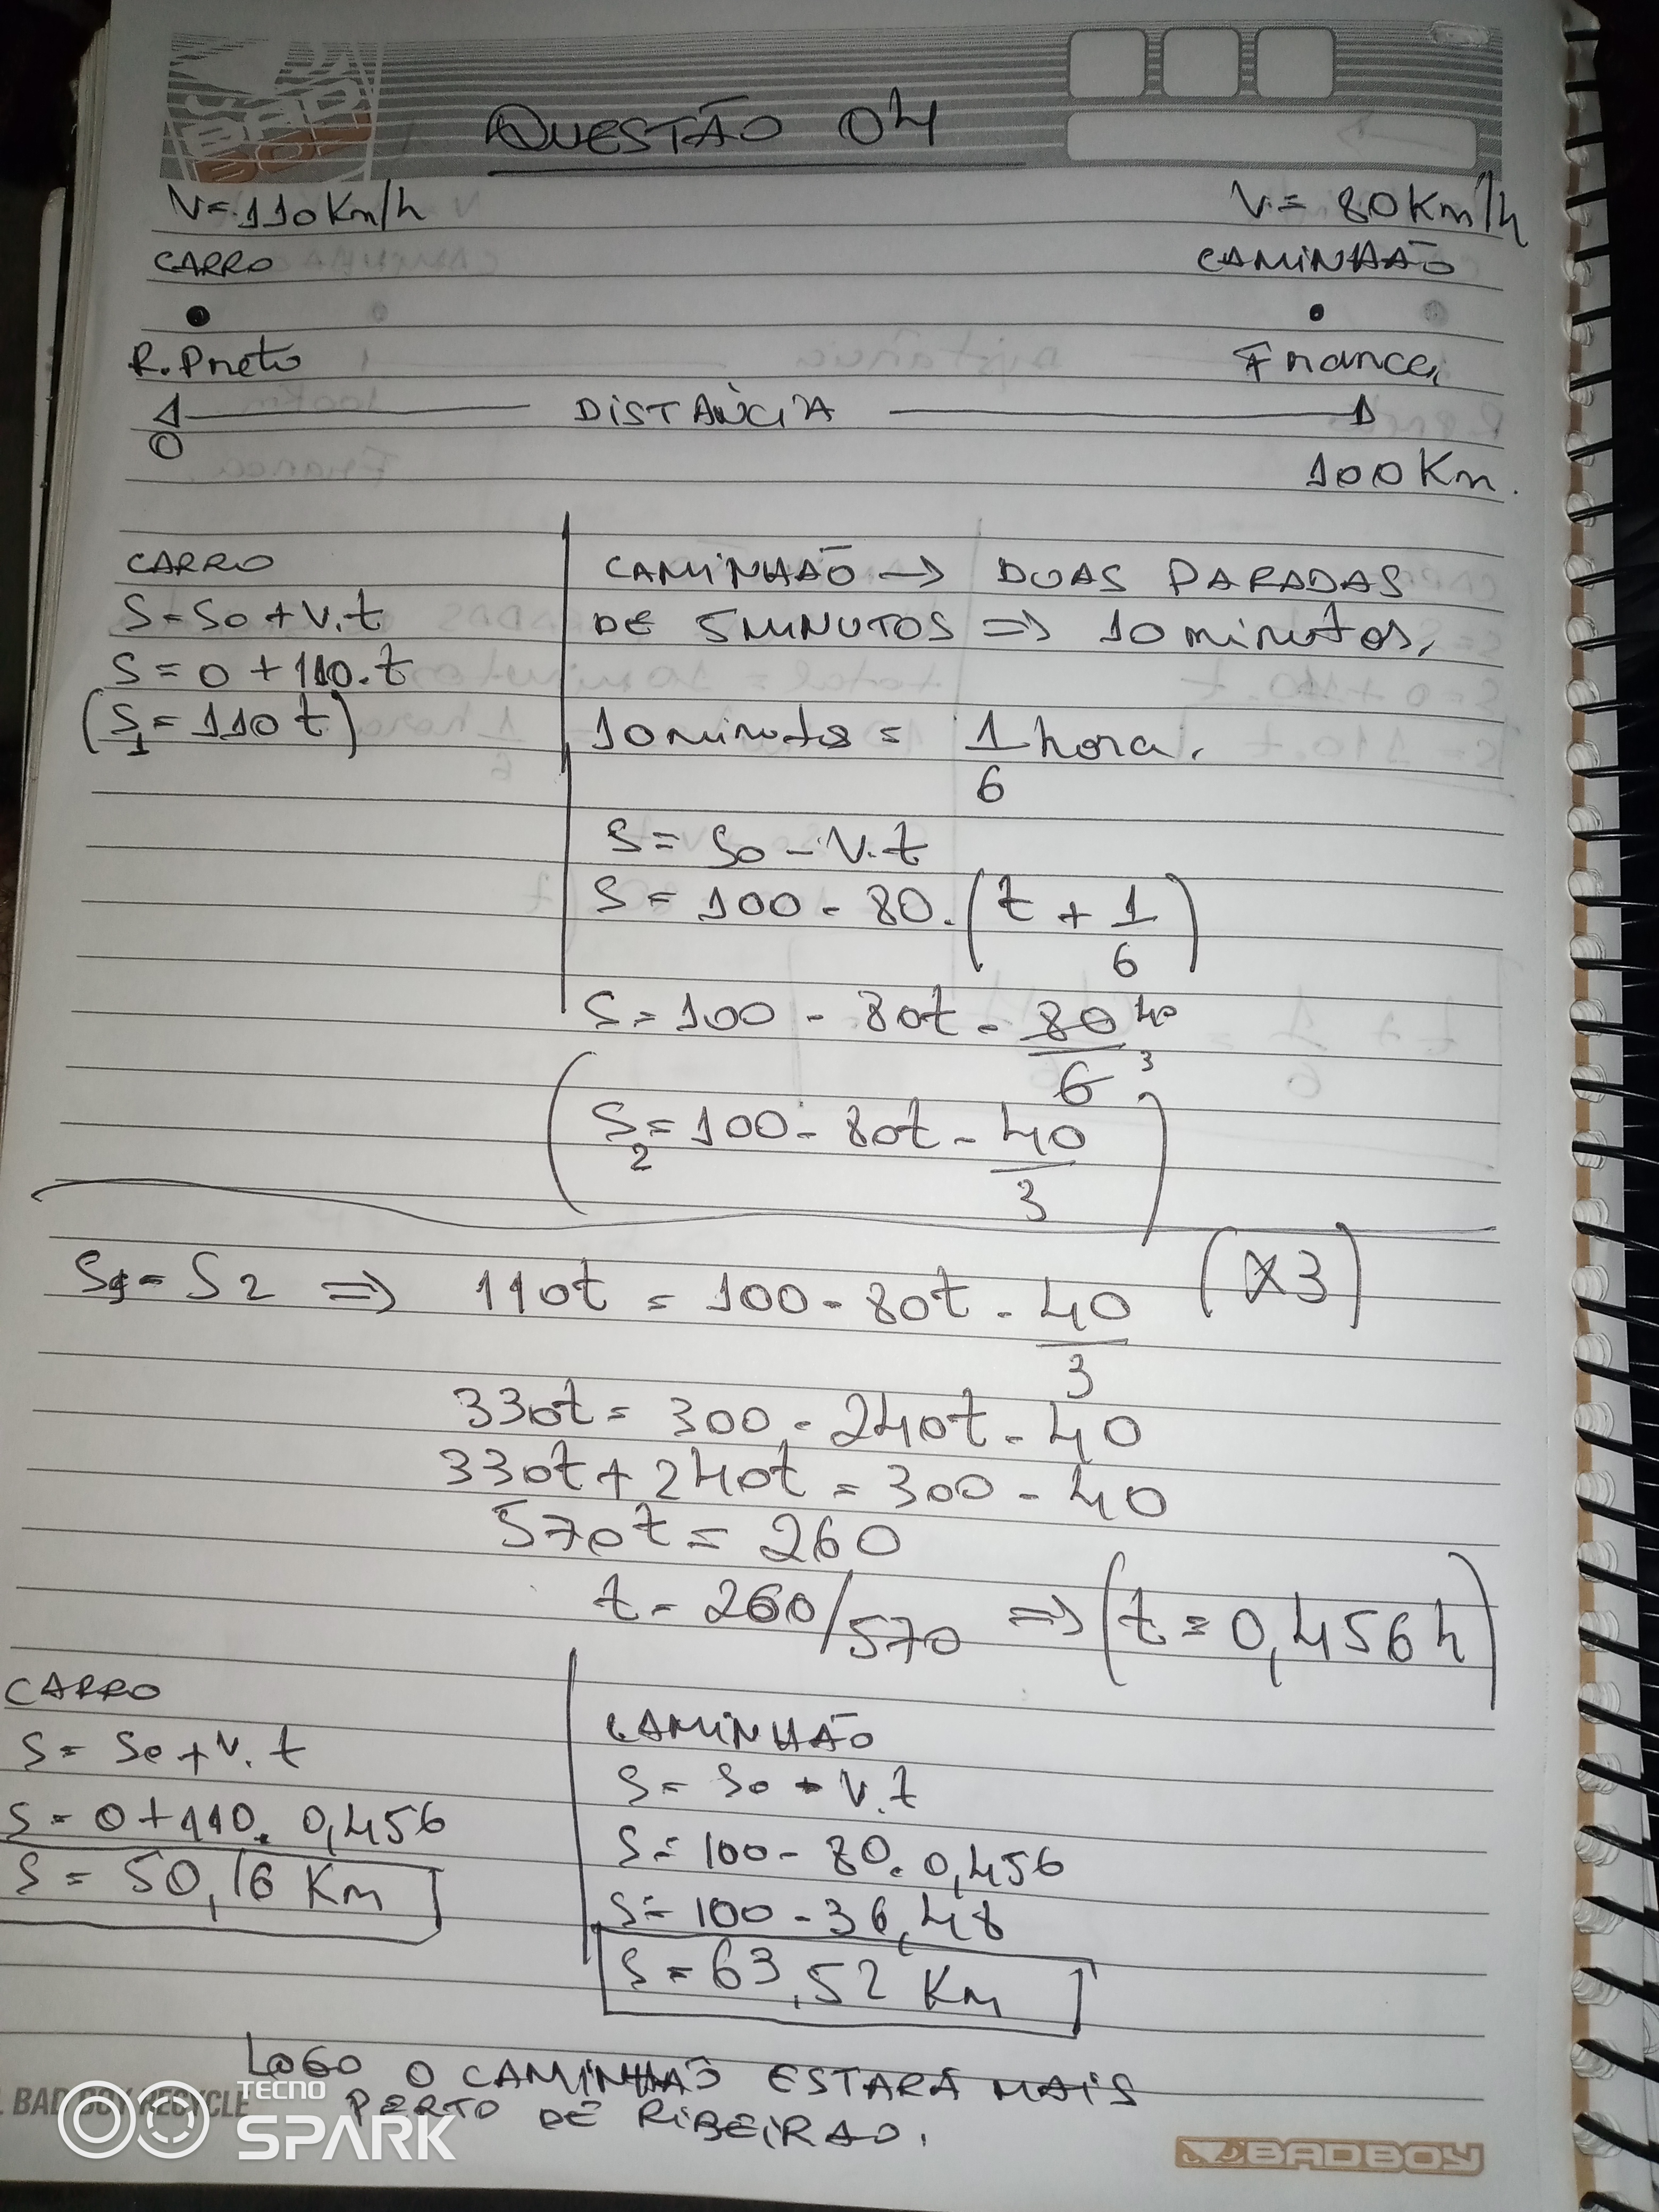 QUESTÃO 04
V=110Km/h V= 80Km/h
CARRO CAMINHÃO
R.Preto Franca,
DISTÂNCIA
0
100Km.
CARRO
S=So+V.t
S=0+110.t
(S1=110t)
CAMINHÃO → DUAS PARADAS
DE 5MINUTOS ⇒ 10minutos,
10minutos = 1/6 hora.
S=So-V.t
S=100-80.(t+1/6)
S=100-80t-80/6 40/3
(S2=100-80t-40/3)
S1=S2 ⇒ 110t=100-80t-40/3 (X3)
330t=300-240t-40
330t+240t=300-40
570t=260
t=260/570 ⇒ (t=0,456h)
CARRO
S=So+V.t
S=0+110.0,456
S=50,16 Km
CAMINHÃO
S=So-V.t
S=100-80.0,456
S=100-36,48
S=63,52 Km
LOGO O CAMINHÃO ESTARÁ MAIS
PERTO DE RIBEIRAO.
BAD BOY RECYCLE
TECNO
SPARK
BADBOY